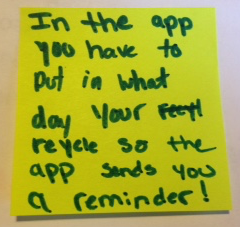 In the app
you have to
put in what
day your
reycle so the
app sends you
a reminder!